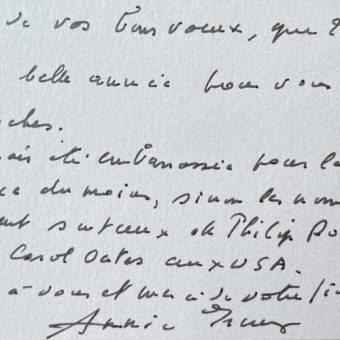 de vos bons vœux, que 2
belle année pour vous
ches.
ais été embarrassée pour la
ce du moins, sinon les nom
ent surtaux de Philip Ro
Carol Oates aux USA.
à vous et merci de votre fi
Annie Ernaux